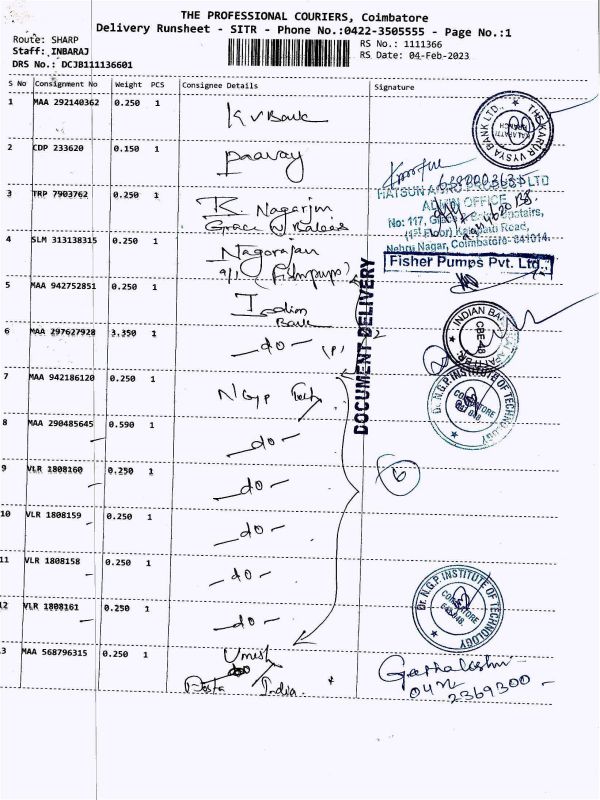 THE PROFESSIONAL COURIERS, Coimbatore
Delivery Runsheet - SITR - Phone No.:0422-3505555 - Page No.:1
Route: SHARP
Staff: INBARAJ
DRS No.: DCJB111136601
RS No.: 1111366
RS Date: 04-Feb-2023
S No Consignment No Weight PCS Consignee Details Signature
1 MAA 292140362 0.250 1 K V Bank
THE KARUR VYSYA BANK LTD.,
2 CDP 233620 0.150 1
3 TRP 7903762 0.250 1 K. Nagarjun
Grace
HATSUN AGRO PRODUCT LTD
ADMIN OFFICE
No: 117,
(1st Floor) Kalapatti Road,
Nehru Nagar, Coimbatore-641014.
4 SLM 313138315 0.250 1 Nagarajan
Fisher Pumps Pvt. Ltd.,
5 MAA 942752851 0.250 1 Indian
Bank
DOCUMENT DELIVERY
INDIAN BANK
CBE-48
6 MAA 297627928 3.350 1 -do-
7 MAA 942186120 0.250 1 NGP Tech
Dr. N.G.P. INSTITUTE OF TECHNOLOGY
COIMBATORE
641 048
8 MAA 290485645 0.590 1 -do-
9 VLR 1808160 0.250 1 -do-
6
10 VLR 1808159 0.250 1 -do-
11 VLR 1808158 0.250 1 -do-
12 VLR 1808161 0.250 1 -do-
Dr. N.G.P. INSTITUTE OF TECHNOLOGY
COIMBATORE
641 048
3 MAA 568796315 0.250 1 Umesh
India
2369300